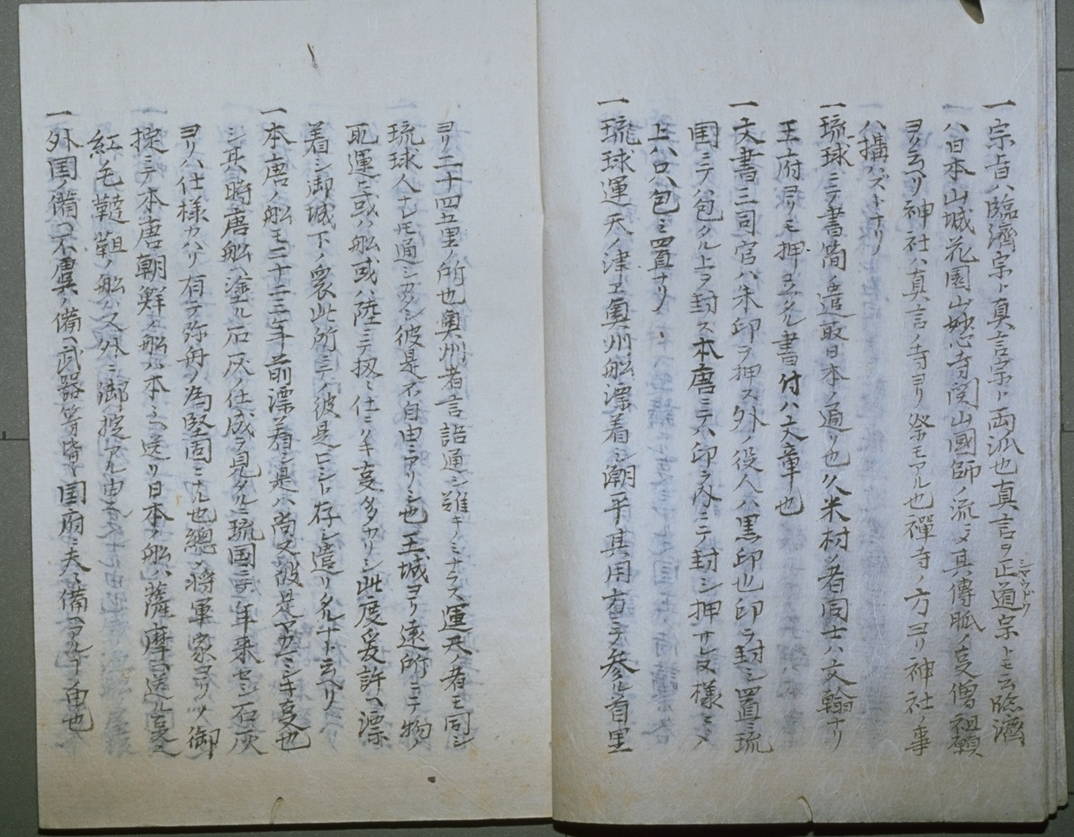 一宗旨ハ臨濟宗ト真言宗ト両派也真言ヲ正道宗トモ云臨濟
シヤウドウ
ハ日本山城花園山妙心寺関山國師ノ流ニ〆其傳脈ノ支僧祖願
ヨリ云ヘリ神社ハ真言ノ寺ヨリ祭モアル也禪寺ノ方ヨリ神社ノ事
ハ搆ハズトナリ
一琉球ニテ書簡ノ遣取日本ノ通リ也久米村ノ者同士ハ文翰ナリ
王府司モ押立タル書付ハ文章也
一文書三司官ハ朱印ヲ押ス外ノ役人ハ黒印也印ヲ封シ置琉
国ニテハ包タル上ヲ封ス本唐ニテハ印ヲ内ニテ封シ押サレヌ様ニ〆
上ハ只包ミ置ナリ
一琉球運天ノ津エ奥州船漂着シ潮平其用方ニテ参ル首里
ヨリ二十四五里ノ所也奥州者言語通シ難キノミナラス運天ノ者モ同シ
琉球人ナレ𪜈通シカタシ彼是不自由ニアリシ也王城ヨリ遠所ニテ物ノ
配運ヒ或ハ船或ハ陸ニテ扱ヒ仕ニクキ支多カリシ此度爰許ヘ漂
着シ御城下ノ衆此所ニテノ彼是ロシト存シ遣リタルナト云ヘリ
一本唐ノ船モ二十二三年前漂着シ是ハ尚又彼是六ケシキ支也
シ其時唐船ヘ塗ル石灰ノ仕成ヲ見タルニ琉国ニテ年来セシ石灰
ヨリハ仕様カハリ有テ弥舟ノ為堅固ニナル也總テ将軍家ヨリノ御
掟ニテ本唐朝鮮ノ船ハ本国ヘ送リ日本ノ船ハ薩摩ヘ送ル支也
紅毛韃靼ノ船ハ又外ニ御掟アル由也
一外国ノ備ヘ不虞ノ備ヘ武器等皆々国府ニ夫々備ヘアル由也